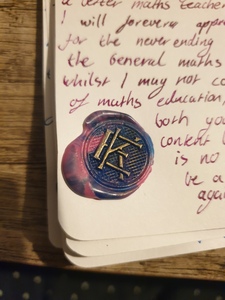 a career maths teacher
I will forever appr
for the never ending
the General maths
whilst I may not co
of maths education,
both you
content
is no
be a
again
K